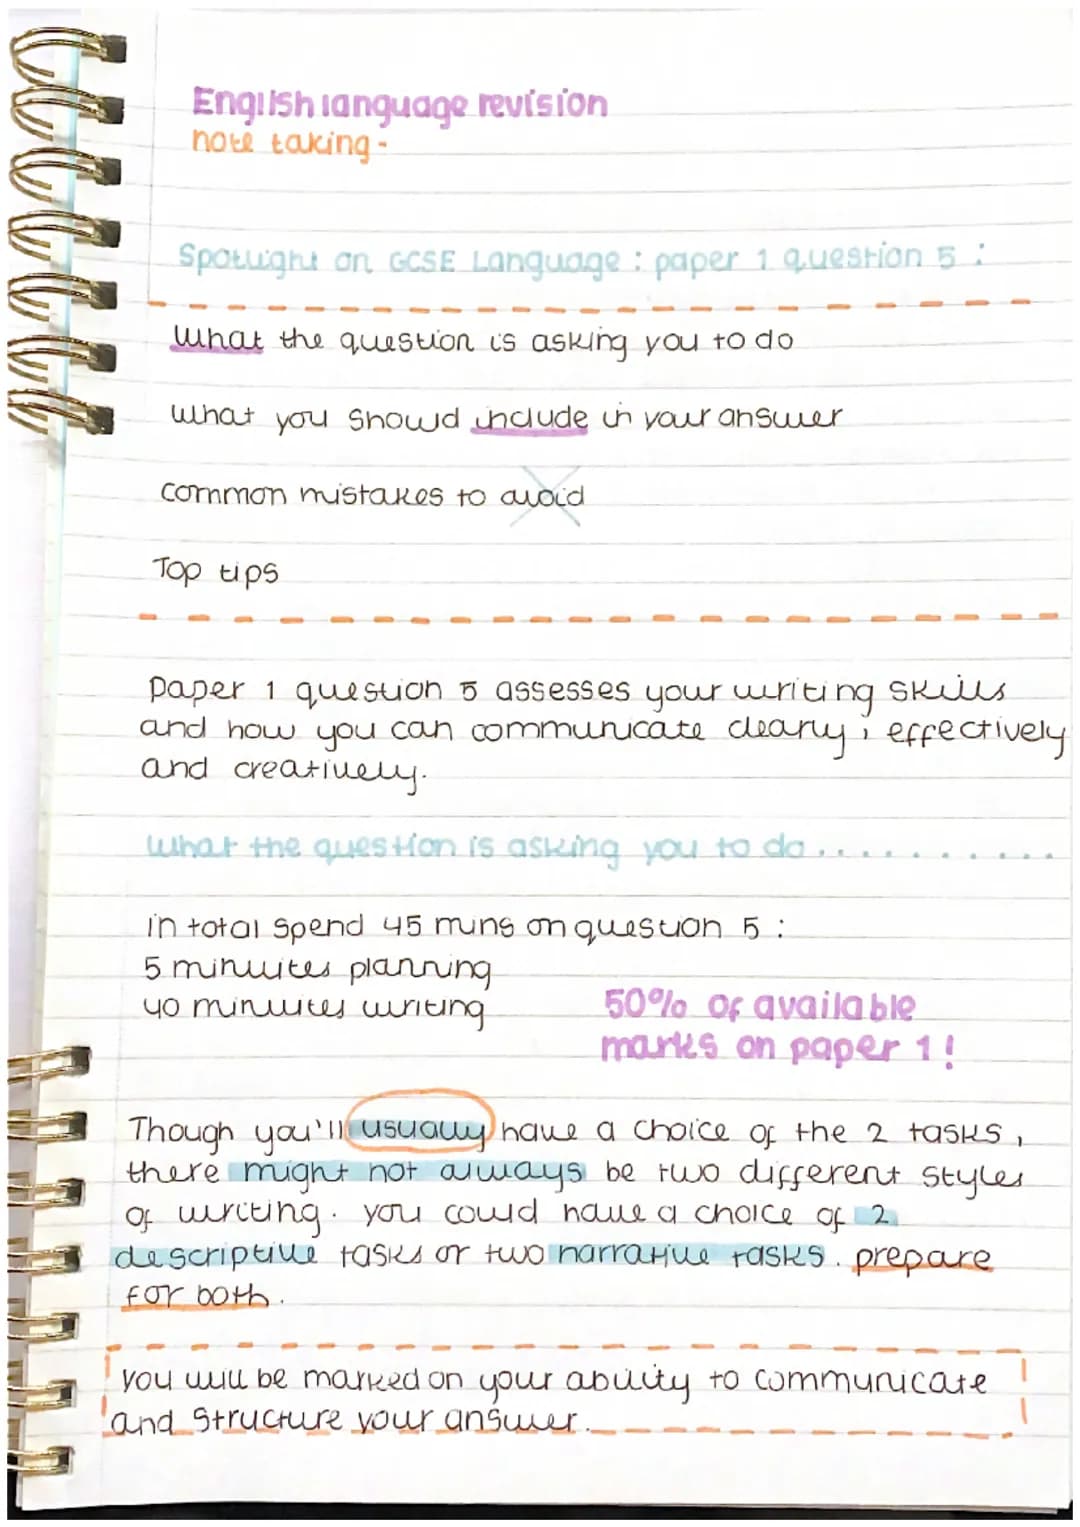 English language revision
note taking -
Spotlight on GCSE Language : paper 1 question 5 :
What the question is asking you to do
what you should include in your answer
common mistakes to avoid
Top tips
paper 1 question 5 assesses your writing skills
and how you can communicate clearly, effectively
and creatively.
what the question is asking you to do...........
in total spend 45 mins on question 5 :
5 minuites planning
40 minuites writing
50% of available
marks on paper 1!
Though you'll usually have a choice of the 2 tasks,
there might not always be two different styles
of writing. you could have a choice of 2
descriptive tasks or two narrative tasks. prepare
for both.
you will be marked on your ability to communicate
and structure your answer.